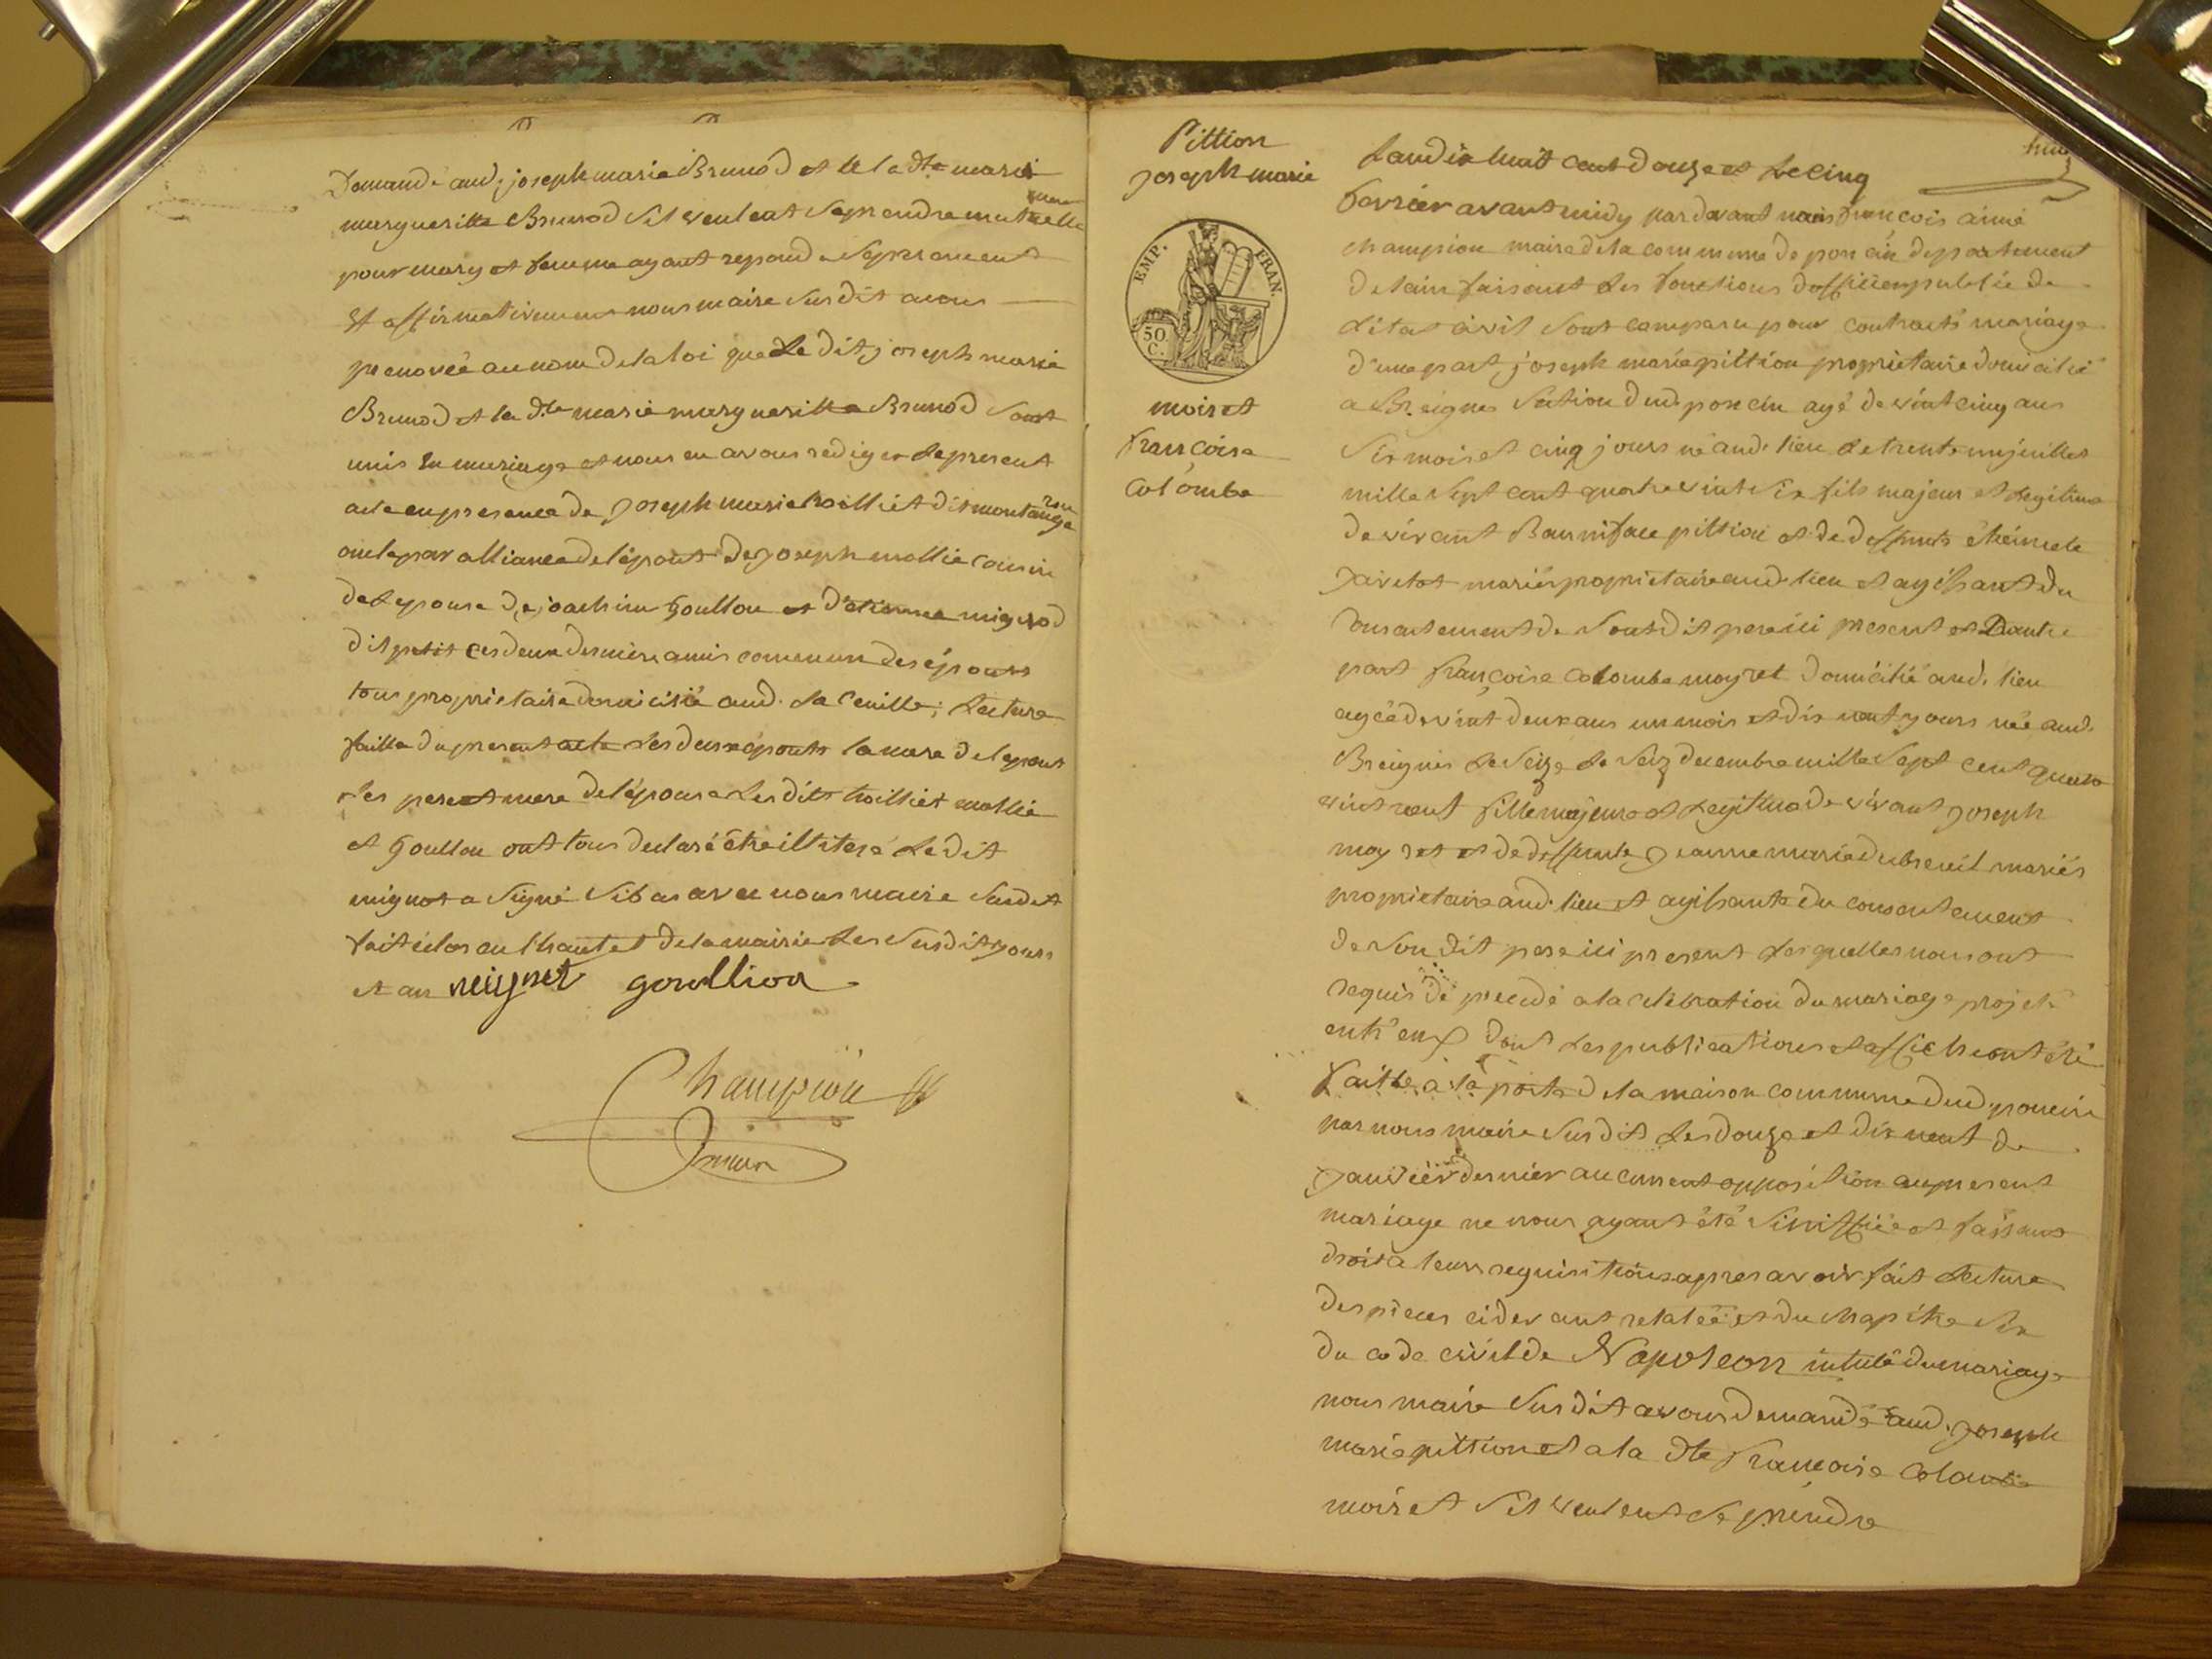 Demandé aud. joseph marie Brunod et a la dte marie
margueritte Brunod s'il veuleat se prendre mutuelle
pour mary et femme ayant repondu separement
Et affirmativement nous maire susdit avons
prenoncé au nom de la loi que Le dit joseph marie
Brunod et la dte marie margueritte Brunod sont
unis En mariage et nous en avons rédiger le present
acte en presence de joseph marie
oncle par alliance de l'épout de joseph mollié cousin
de l'epouse de joachim goullon et d'etienne mignod
dit petit ces deux derniere amis commun des épouts
tous proprietaire domicilié aud. la Cueille; Lecture
faitte du present acte les deux epouts la mere de lepout
les pere et mere de l'épouse les dits mollié
et goullon ont tous declaré être illiteré le dit
mignot a signé si bas avec nous maire susdit
fait et clos en l'hautel de la mairie les susdit jours
et an meignet goullion
Champion
maire
Pittion
joseph marie
EMP. FRAN.
50.
C.
moiret
françoise
Colombe
L'an dix huit cent douze et le cinq
fevrier avant midy pardevant nous françois aimé
champion maire de la commune de poncin departement
de l'ain faisant les fonctions d'officier publié de
l'état civil sont comparu pour contracté mariage
d'une part, joseph marie pittion proprietaire domicilié
a Breignes section dud. poncin agé de vint cinq ans
six mois et cinq jours né aud. lieu le trente un juillet
mille sept cent quatre vint six fils majeur et legitime
de vivant Bauniface pittion et de deffunte
mariés proprietaire aud. lieu et agissant du
consentement de sont dit pere ici present et Dautre
part françoise Colombe moyret domicilié aud. lieu
agéé de vint deux ans un mois et dix neut jours née aud.
Breignes le seize de seiz decembre mille sept cent quatre
vint neuf fille majeure et legitime de vivant joseph
moyret et de deffunte jeanne marie dubreuil mariés
proprietaire aud. lieu et agissante du consentement
de son dit pere ici present lesquelles nous ont
requis de procédé a la celébration du mariage projeté
entr'eux dont les publications et affiche ont été
faitte à la porte de la maison commune dud. poncin
par nous maire susdit les douze et dix neuf de
janvier dernier aucunent opposition au present
mariage ne nous ayant été siniffiée et faisant
droit a leurs requisitions apres avoir fait lecture
des pieces cidevant relatéé et du chapitre six
du code civil de Napoleon intulé du mariage
nous maire susdit avons demandé aud. joseph
marie pittion et a la dte françoise colombe
moiret s'il veulent se prendre